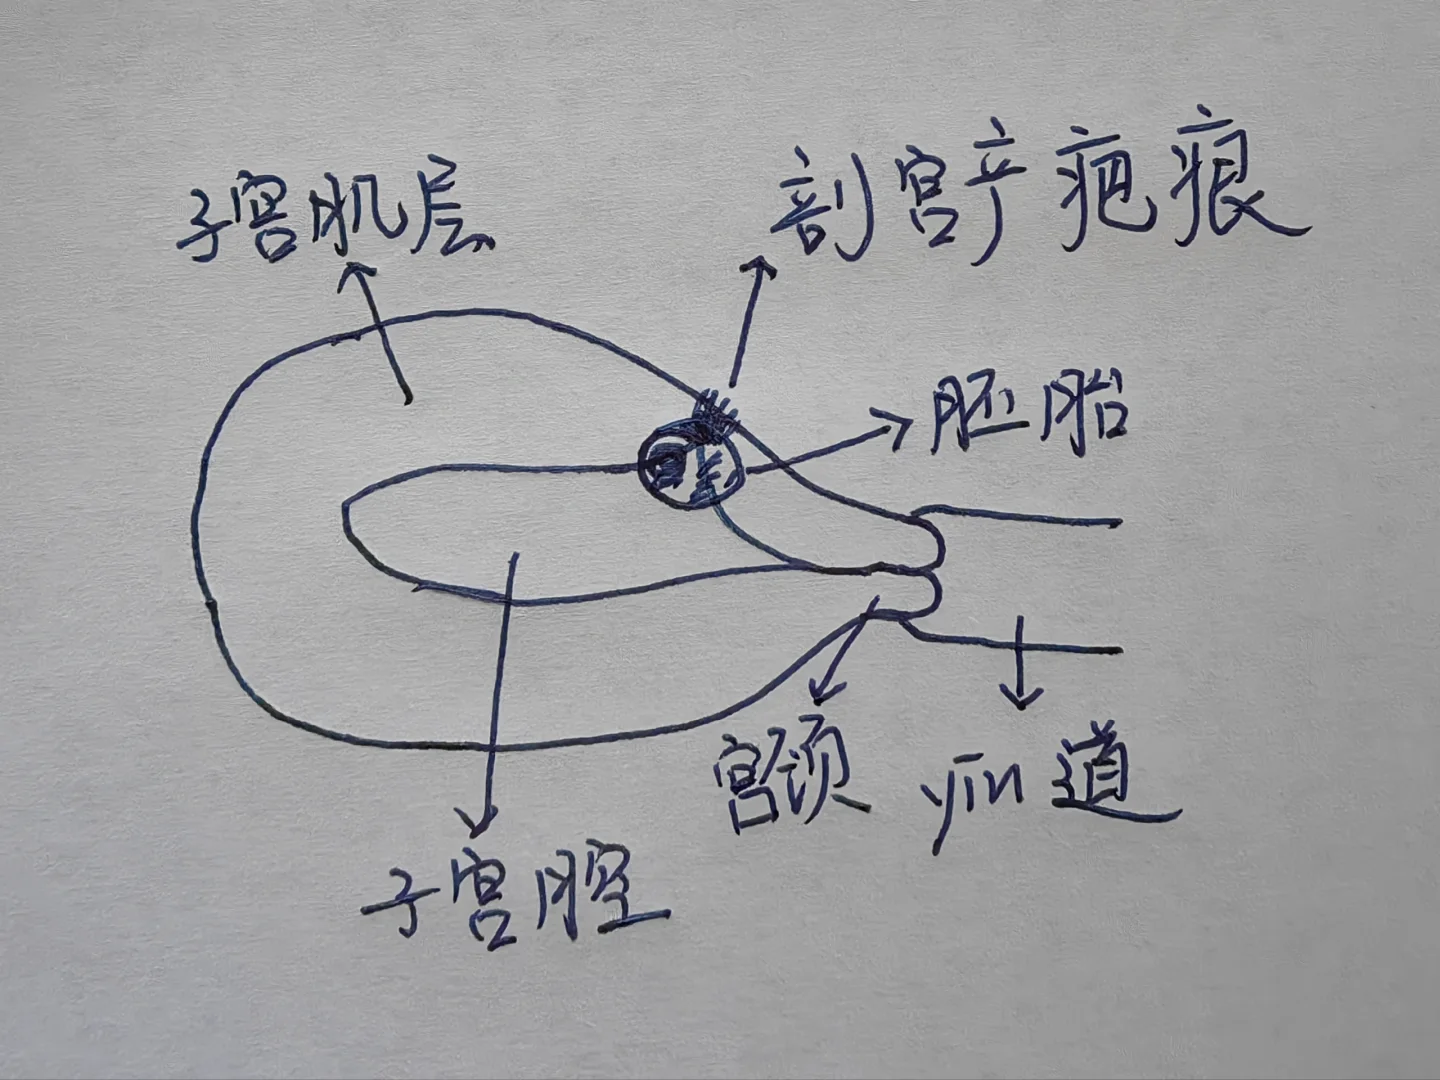 子宫肌层
剖宫产疤痕
胚胎
宫颈
yin道
子宫腔